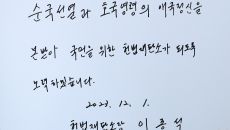 순국선열과 호국영령의 애국정신을
본받아 국민을 위한 헌법재판소가 되도록
노력하겠습니다.
2023. 12. 1.
헌법재판소장 이 종 석